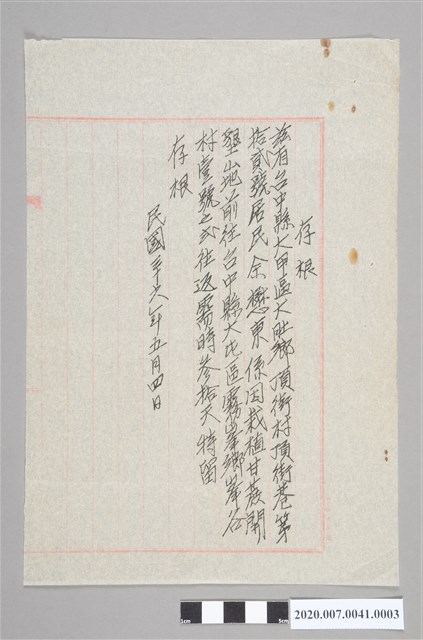 存根
茲有台中縣大甲區大肚鄉頂街村頂街巷第
拾貳號居民余懋東係因栽植甘蔗開
墾山地前往台中縣大屯區霧峯鄉峯谷
村壹號之 往返需時參拾天特留
存根
民國三十六年五月四日
1cm 5cm
2020.007.0041.0003